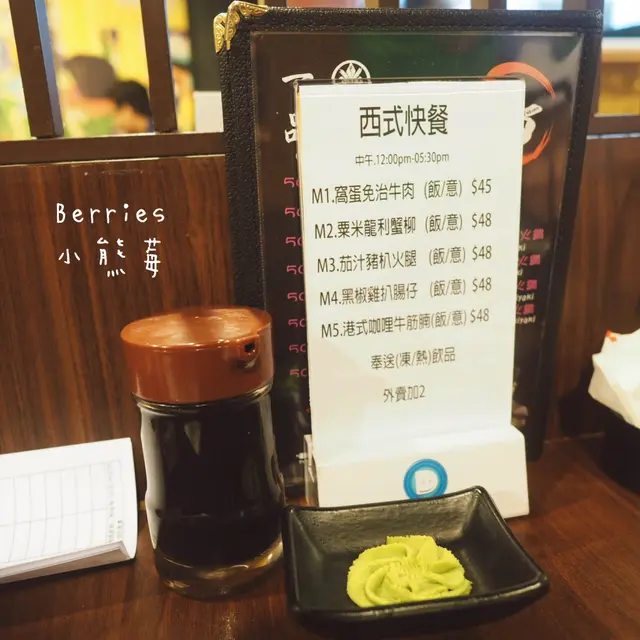 西式快餐
中午.12:00pm-05:30pm
M1.窩蛋免治牛肉 (飯/意) $45
M2.粟米龍利蟹柳 (飯/意) $48
M3.茄汁豬扒火腿 (飯/意) $48
M4.黑椒雞扒腸仔 (飯/意) $48
M5.港式咖哩牛筋腩(飯/意) $48
奉送(凍/熱)飲品
外賣加2
Berries
小熊莓